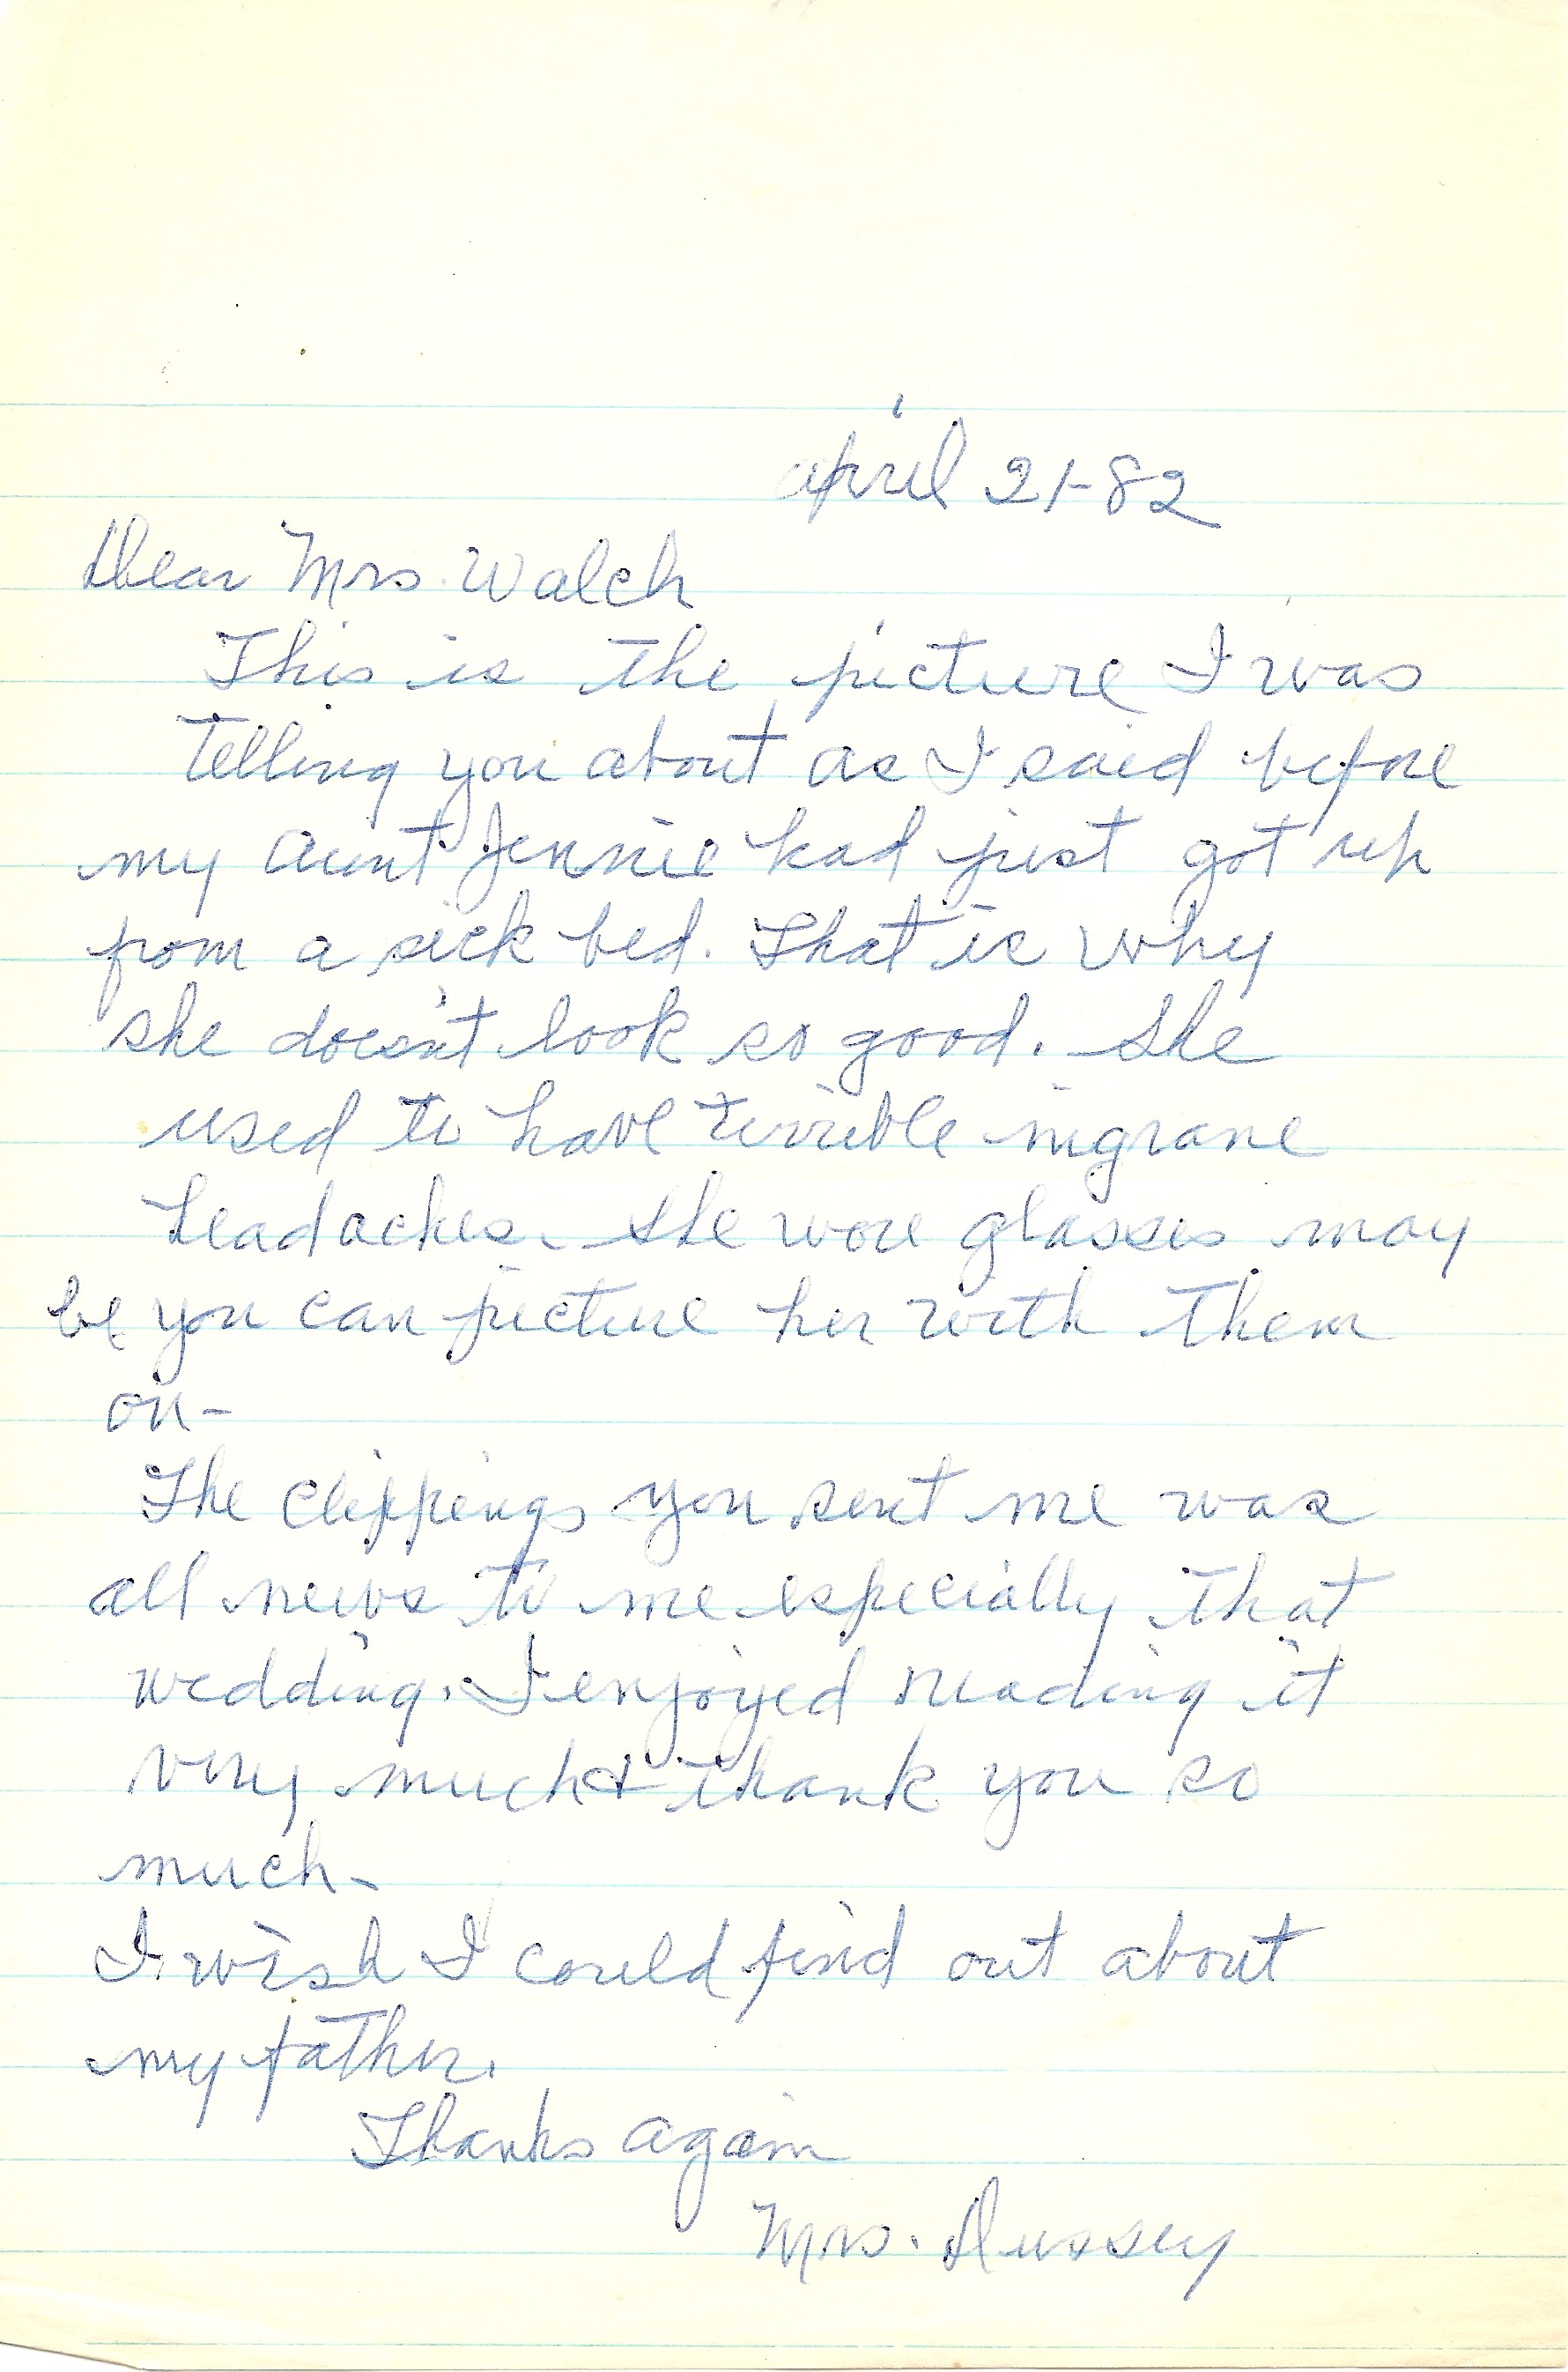 april 21-82
Dear Mrs. Walch
This is the picture I was
telling you about as I said before
my aunt Jennie had just got up
from a sick bed. That is why
she doesn't look so good. She
used to have terrible migrane
headaches. She wore glasses may
be you can picture her with them
on-
The clippings you sent me was
all news to me especially that
wedding. I enjoyed reading it
very much & thank you so
much-
I wish I could find out about
my father.
Thanks again
Mrs. Dussey